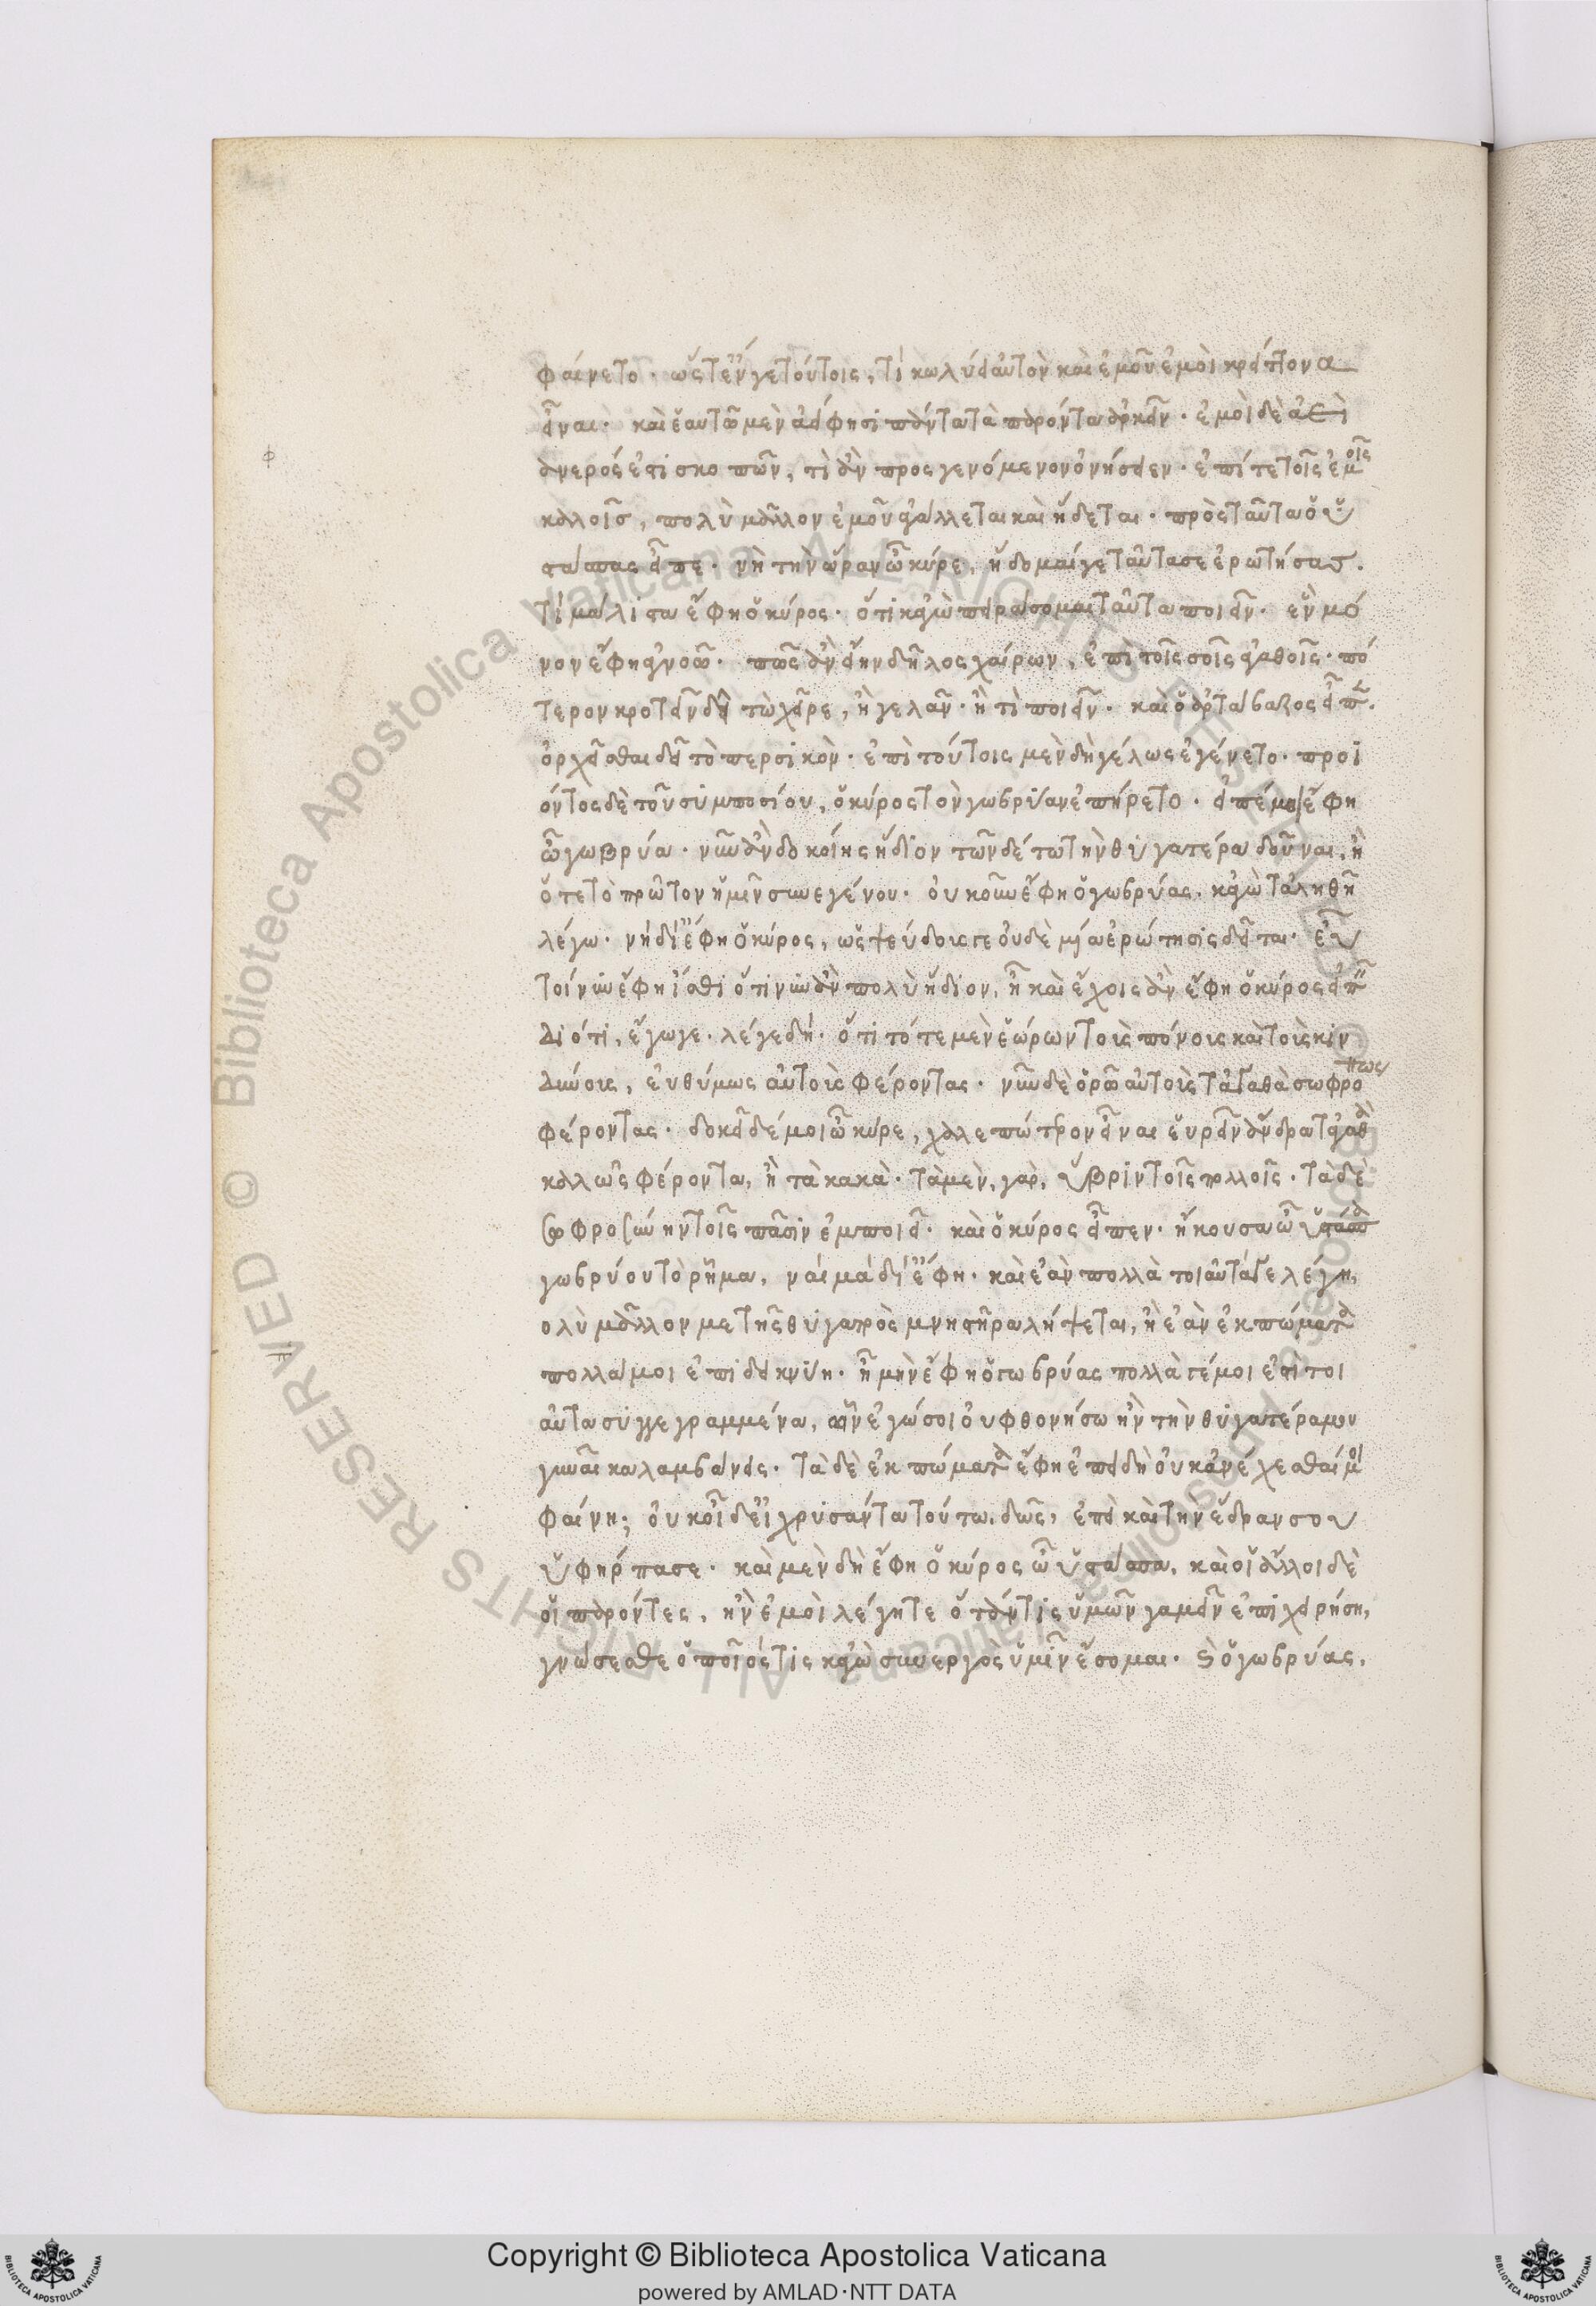 φαίνετο. ὥστ' ἐν γε τούτοις, τί κωλύει αὐτὸν καὶ ἐμοῦ ἐμοὶ κρείττονα
εἶναι. καὶ ἑαυτῶ μὲν ἀεί φησι πάντα τὰ παρόντα ἀρκεῖν. ἐμοὶ δὲ ἀεὶ
φανερός ἐστι σκοπῶν, τί ἂν προσγενόμενον ὀνήσειεν. ἐπί τε τοῖς ἐμοῖς
καλοῖς, πολὺ μᾶλλον ἐμοῦ ἀγάλλεται καὶ ἥδεται. πρὸς ταῦτα ὁ ὑ
στάσπας εἶπε. νὴ τὴν ἥραν ὦ κύρε, ἥδομαί γε ταῦτα σε ἐρωτήσας.
τί μάλιστα ἔφη ὁ κύρος. ὅτι κἀγὼ πειράσομαι ταῦτα ποιεῖν. ἓν μό
νον ἔφη ἀγνοῶ. πῶς ἂν εἴην δῆλος χαίρων, ἐπὶ τοῖς σοῖς ἀγαθοῖς. πό
τερον κροτεῖν δεῖ τὼ χεῖρε, ἢ γελᾶν. ἢ τί ποιεῖν. καὶ ὁ ἀρτάβαζος εἶπεν.
ὀρχεῖσθαι δεῖ τὸ περσικὸν. ἐπὶ τούτοις μὲν δὴ γέλως ἐγένετο. προϊ
όντος δὲ τοῦ συμποσίου, ὁ κύρος τὸν γωβρύαν ἐπήρετο. εἰπέ μοι ἔφη
ὦ γωβρύα. νῦν ἂν δοκοίης ἥδιον τῶνδέ τω τὴν θυγατέρα δοῦναι, ἢ
ὅτε τὸ πρῶτον ἡμῖν συνεγένου. οὐκοῦν ἔφη ὁ γωβρύας. κἀγὼ τἀληθῆ
λέγω. νὴ δί' ἔφη ὁ κύρος, ὡς ψεύδους γε οὐδὲ μία ἐρώτησις δεῖται. εὖ
τοίνυν ἔφη ἴσθι ὅτι νῦν ἂν πολὺ ἥδιον, ἦ καὶ ἔχοις ἂν ἔφη ὁ κύρος εἰπεῖν
διότι, ἔγωγε. λέγε δή. ὅτι τότε μὲν ἑώρων τοὺς πόνους καὶ τοὺς κιν
δύνους, εὐθύμως αὐτοὺς φέροντας. νῦν δὲ ὁρῶ αὐτοὺς τἀγαθὰ σωφρόνως
φέροντας. δοκεῖ δέ μοι ὦ κύρε, χαλεπώτερον εἶναι εὑρεῖν ἄνδρα τἀγαθὰ
καλῶς φέροντα, ἢ τὰ κακὰ. τὰ μὲν, γὰρ, ὕβριν τοῖς πολλοῖς. τὰ δὲ
σωφροσύνην τοῖς πᾶσιν ἐμποιεῖ. καὶ ὁ κύρος εἶπεν. ἤκουσας ὦ ὑστάσπα
γωβρύου τὸ ῥῆμα, ναὶ μὰ δί' ἔφη. καὶ ἐὰν πολλὰ τοιαῦτά γε λέγη,
ολὺ μᾶλλον με τῆς θυγατρὸς μνηστῆρα λήψεται, ἢ ἐὰν ἐκπώματα
πολλά μοι ἐπιδεικνύη. ἦ μὴν ἔφη ὁ γωβρύας πολλά γέ μοι ἐστὶ τοι
αῦτα συγγεγραμμένα, ὧν ἐγώ σοι οὐ φθονήσω ἢν τὴν θυγατέρα μου
γυναῖκα λαμβάνεις. τὰ δὲ ἐκπώματα ἔφη ἐπειδὴ οὐκ ἀνέχεσθαί μοι
φαίνη; οὐκ οἶδ' εἰ χρυσάντα τούτω δῶς, ἐπεὶ καὶ τὴν ἕδραν σου
ὑφήρπασε. καὶ μὲν δὴ ἔφη ὁ κύρος ὦ ὑστάσπα, καὶ οἱ ἄλλοι δὲ
οἱ παρόντες, ἢν ἐμοὶ λέγητε ὅταν τις ὑμῶν γαμεῖν ἐπιχειρήση,
γνώσεσθε ὁποῖός τις κἀγὼ συνεργὸς ὑμῖν ἔσομαι. καὶ ὁ γωβρύας,
© Biblioteca Apostolica Vaticana ALL RIGHTS RESERVED
Copyright © Biblioteca Apostolica Vaticana
powered by AMLAD·NTT DATA